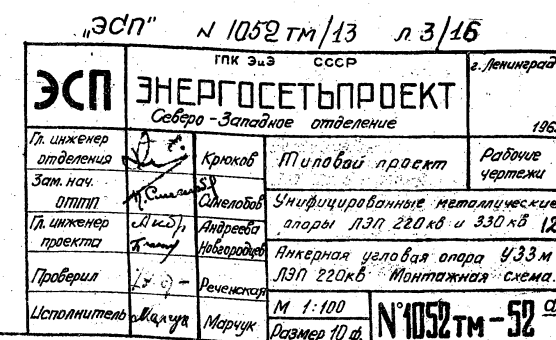 „ЭСП" N 1052тм/13 л 3/16
ГПК ЭиЭ СССР
г. Ленинград
ЭСП
ЭНЕРГОСЕТЬПРОЕКТ
Северо-Западное отделение
196
Гл. инженер отделения
Крюков
Типовой проект
Рабочие чертежи
Зам. нач. ОТТП
Синелобов
Унифицированные металлические
опоры ЛЭП 220кв и 330кв
Гл. инженер проекта
Андреева
Новгородцев
Анкерная угловая опора У33м
ЛЭП 220кв Монтажная схема.
Проверил
Реченская
Исполнитель
Марчук
М 1:100
Размер 10 ф.
N°1052тм-52